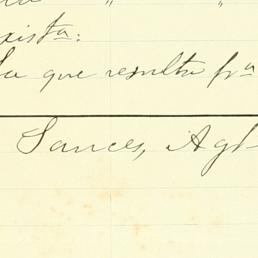 " "
xista:
La que resulta fra
Sances, Agt